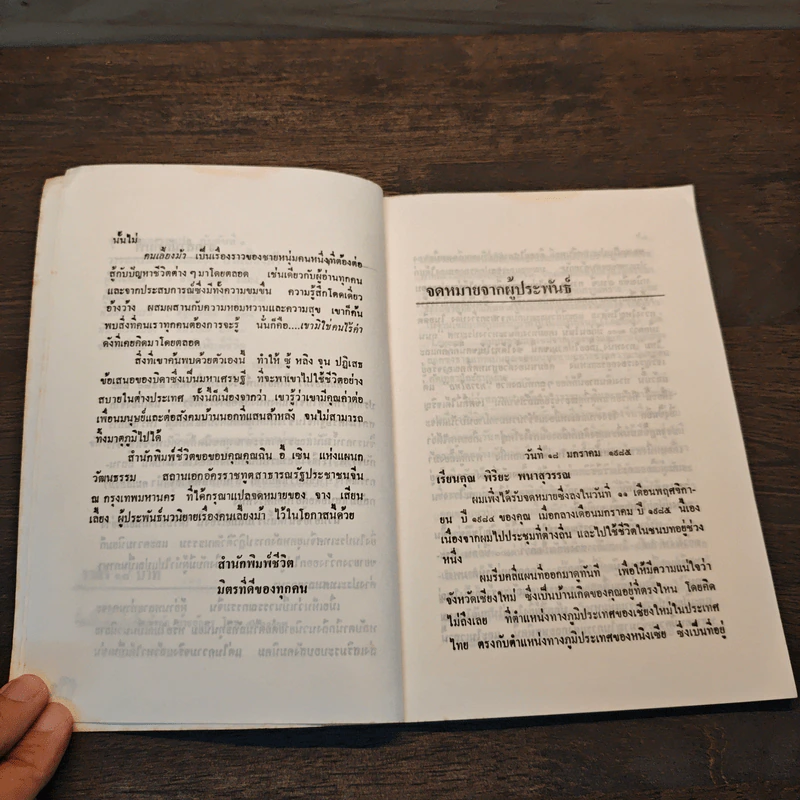 นั้นไม่
คนเลี้ยงม้า เป็นเรื่องราวของชายหนุ่มคนหนึ่งที่ต้องต่อ
สู้กับปัญหาชีวิตต่าง ๆ มาโดยตลอด เช่นเดียวกับผู้อ่านทุกคน
และจากประสบการณ์ซึ่งมีทั้งความขมขื่น ความรู้สึกโดดเดี่ยว
อ้างว้าง ผสมผสานกับความหอมหวานและความสุข เขาก็ค้น
พบสิ่งที่คนเราทุกคนต้องการจะรู้ นั่นก็คือ....เขามิใช่คนไร้ค่า
ดังที่เคยคิดมาโดยตลอด
สิ่งที่เขาค้นพบด้วยตัวเองนี้ ทำให้ ซู้ หลิง จุน ปฏิเสธ
ข้อเสนอของบิดาซึ่งเป็นมหาเศรษฐี ที่จะพาเขาไปใช้ชีวิตอย่าง
สบายในต่างประเทศ ทั้งนี้ก็เนื่องจากว่า เขารู้ว่าเขามีคุณค่าต่อ
เพื่อนมนุษย์และต่อสังคมบ้านนอกที่แสนล้าหลัง จนไม่สามารถ
ทิ้งมาตุภูมิไปได้
สำนักพิมพ์ชีวิตขอขอบคุณคุณฉิน อี้ เซิน แห่งแผนก
วัฒนธรรม สถานเอกอัครราชทูตสาธารณรัฐประชาชนจีน
ณ กรุงเทพมหานคร ที่ได้กรุณาแปลจดหมายของ จาง เสียน
เลี้ยง ผู้ประพันธ์นวนิยายเรื่องคนเลี้ยงม้า ไว้ในโอกาสนี้ด้วย
สำนักพิมพ์ชีวิต
มิตรที่ดีของทุกคน
จดหมายจากผู้ประพันธ์
วันที่ ๑๘ มกราคม ๑๙๘๕
เรียนคุณ พิริยะ พนาสุวรรณ
ผมเพิ่งได้รับจดหมายซึ่งลงในวันที่ ๑๑ เดือนพฤศจิกา-
ยน ปี ๑๙๘๔ ของคุณ เมื่อกลางเดือนมกราคม ปี ๑๙๘๕ นี้เอง
เนื่องจากผมไปประชุมที่ต่างถิ่น และไปใช้ชีวิตในชนบทอยู่ช่วง
หนึ่ง
ผมรีบคลี่แผนที่ออกมาดูทันที เพื่อให้มีความแน่ใจว่า
จังหวัดเชียงใหม่ ซึ่งเป็นบ้านเกิดของคุณอยู่ที่ตรงไหน โดยคิด
ไม่ถึงเลย ที่ตำแหน่งทางภูมิประเทศของเชียงใหม่ในประเทศ
ไทย ตรงกับตำแหน่งทางภูมิประเทศของหนิงเซี่ย ซึ่งเป็นที่อยู่